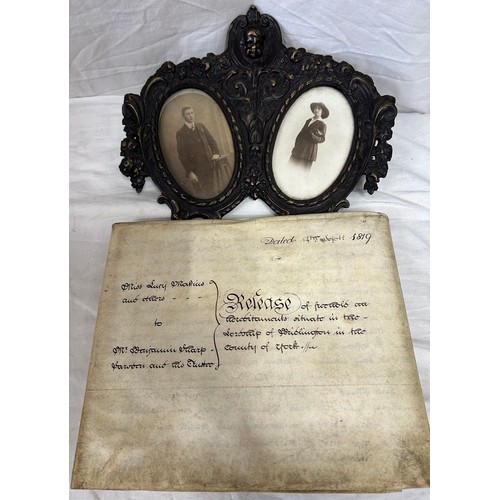 Dated 4th Septr 1819
Miss Lucy Makins
and others - - - -
to
Mr Benjamin Sharp
Lawson and his Trustee
Release of freehold
Hereditaments situate in the
Lordship of Bridlington in the
County of York